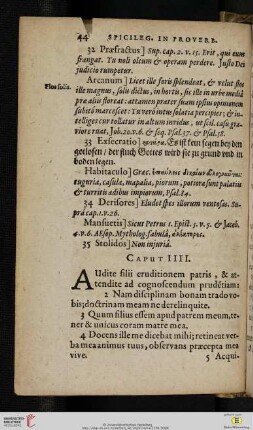 44 SPICILEG. IN PROVERB.
32 Præfractus] Sup. cap. 2. v. 15. Erit, qui eum
frangat. Tu noli oleum & operam perdere. Justo Dei
judicio rumpetur.
Arcanum] Licet ille foris splendeat, & velut flos
ille magnus, solis dictus, in hortis, sic ille in urbe media
præ aliis floreat: attamen præter suam ipsius opinionem
subitò marcescet: Tu verò intus solatia percipies; & in-
telliges cur tollatur in altum invidus, ut scil. casu gra-
viore ruat. Job. 20. v. 6. & seq. Psal. 37. & Psal. 58.
Flos solis.
33 Exsecratio] Es ist kein segen bey den
gottlosen/ der fluch Gottes wird sie zu grund und in
boden legen.
Habitaculo] Græc.
tuguria, casulæ, mapalia, piorum, potiora sunt palatiis
& turritis ædibus impiorum, Psal. 84.
34 Derisores] Eludet spes illorum ventosas. Su-
pra cap. 1. v. 26.
Mansuetis] Sicut Petrus 1. Epist. 5. v. 5. & Jacob.
4. v. 6. Æsop. Mytholog. fabulâ,
35 Stolidos] Non injuriâ.
CAPUT IIII.
Audite filii eruditionem patris, & at-
tendite ad cognoscendum prudētiam:
2 Nam disciplinam bonam trado vo-
bis; doctrinam meam ne derelinquite.
3 Quum filius essem apud patrem meum, te-
ner & unicus coram matre mea.
4 Docens ille me dicebat mihi; retineat ver-
ba mea animus tuus, observans præcepta mea
vive.
5 Acqui-